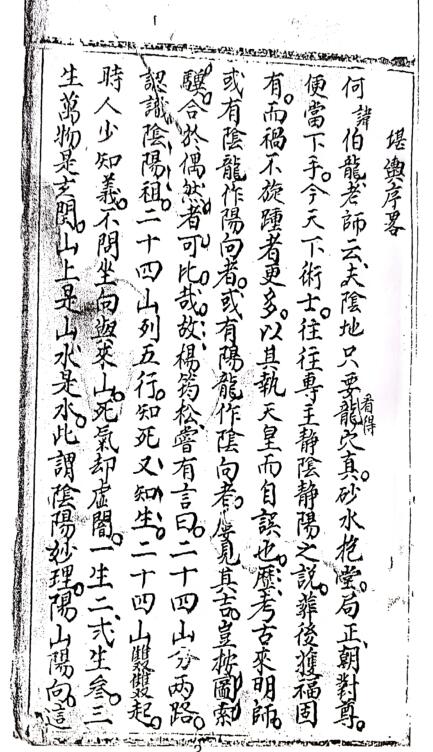 堪輿序畧
何諱伯龍老師云夫陰地只要看得龍穴真。砂水抱堂局正、朝對尊。
便當下手。今天下術士。往往專主静陰静陽之說。葬後獲福固
有。而禍不旋踵者更多。以其執天皇而自誤也。歷考古來明師。
或有陰龍作陽向者。或有陽龍作陰向者。屢見其吉。豈按圖索
驥。合於偶然者可比哉。故楊筠松嘗有言曰。二十四山分兩路。
認識陰陽祖。二十四山列五行。知死又知生。二十四山雙雙起。
時人少知義。不問坐向與來山。死氣却虛閣。一生二、弍生叁。三
生萬物是玄関。山上是山水是水。此謂陰陽妙理。陽山陽向。這